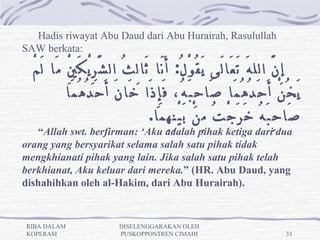 Hadis riwayat Abu Daud dari Abu Hurairah, Rasulullah
SAW berkata:
إِنَّ اللهَ تَعَالَى يَقُوْلُ: أَنَا ثَالِثُ الشَّرِيْكَيْنِ مَا لَمْ
يَخُنْ أَحَدُهُمَا صَاحِبَهُ، فَإِذَا خَانَ أَحَدُهُمَا
صَاحِبَهُ خَرَجْتُ مِنْ بَيْنِهِمَا.
“Allah swt. berfirman: ‘Aku adalah pihak ketiga dari dua
orang yang bersyarikat selama salah satu pihak tidak
mengkhianati pihak yang lain. Jika salah satu pihak telah
berkhianat, Aku keluar dari mereka.” (HR. Abu Daud, yang
dishahihkan oleh al-Hakim, dari Abu Hurairah).
RIBA DALAM
KOPERASI
DISELENGGARAKAN OLEH
PUSKOPPONTREN CIMAHI
33